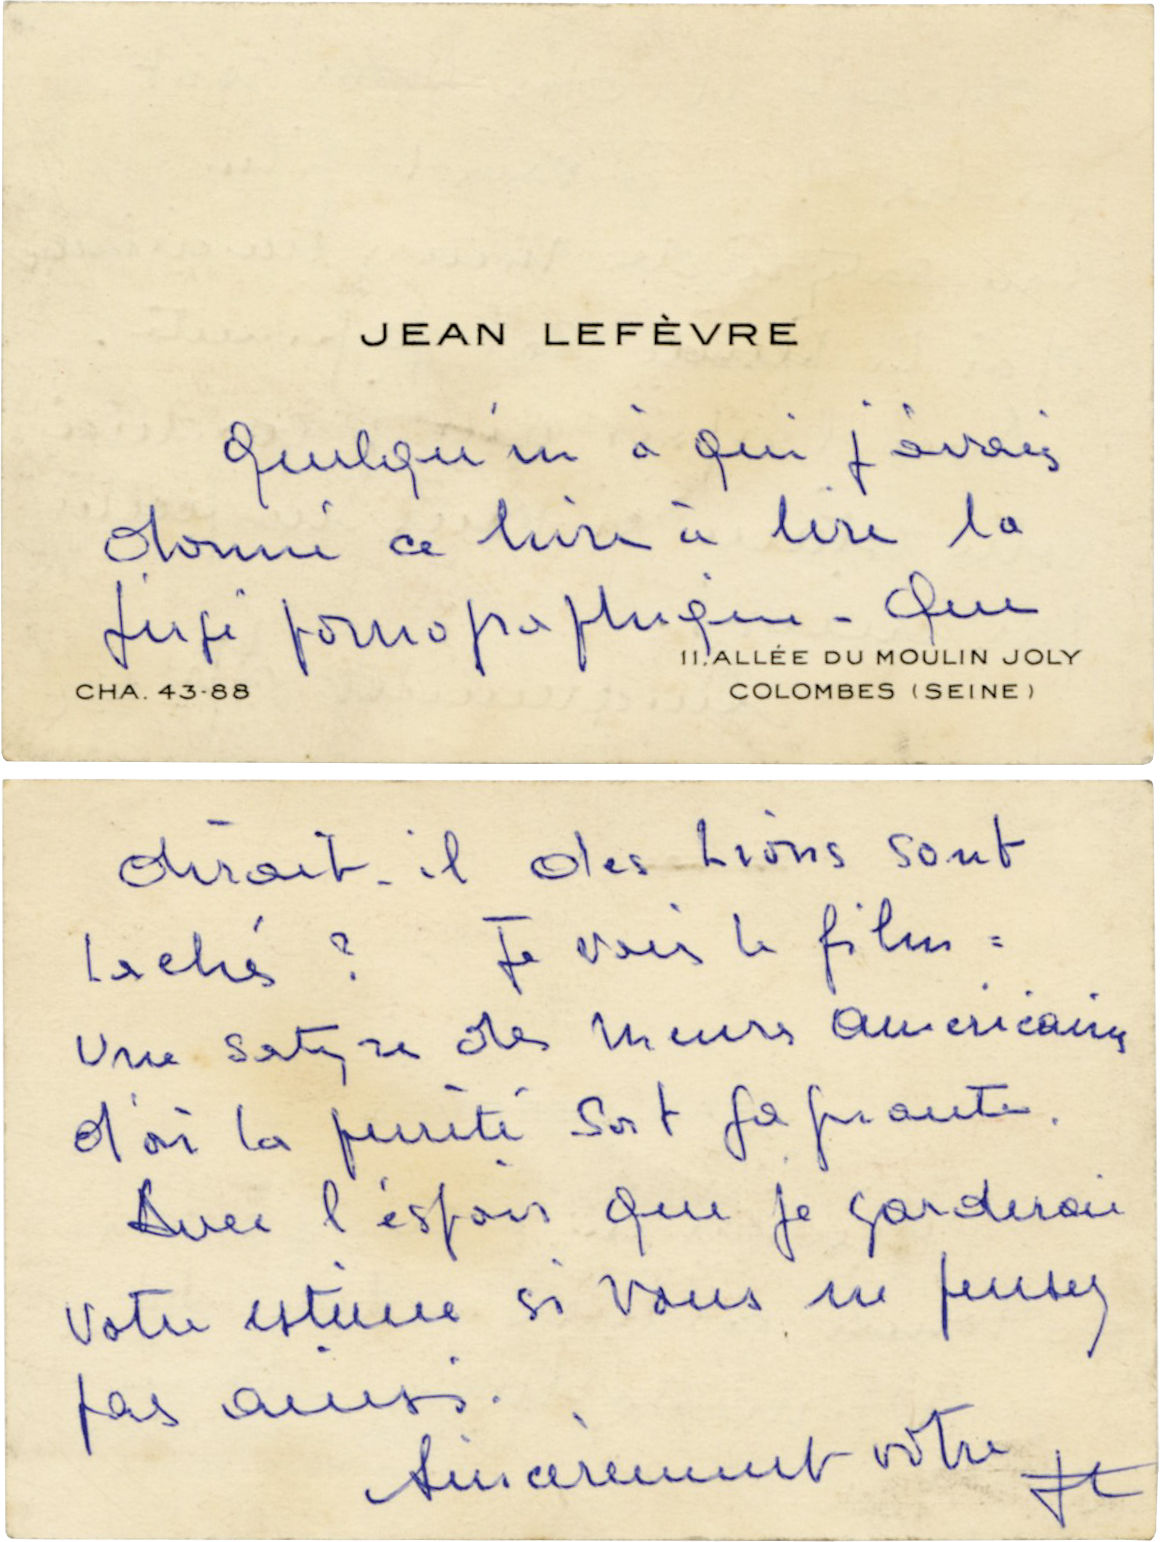 JEAN LEFÈVRE
Quelqu'un à qui j'avais
donné ce livre à lire la
jugé pornographique - Que
11. ALLÉE DU MOULIN JOLY
CHA. 43-88
COLOMBES (SEINE)
dirait-il des Lions sont
lachés ? Je vois le film =
Une satyre des meurs américains
d'où la pureté sort gagnante.
Avec l'éspoir que je garderai
votre estime si vous ne pensez
pas ainsi.
Sincèrement vôtre
JL